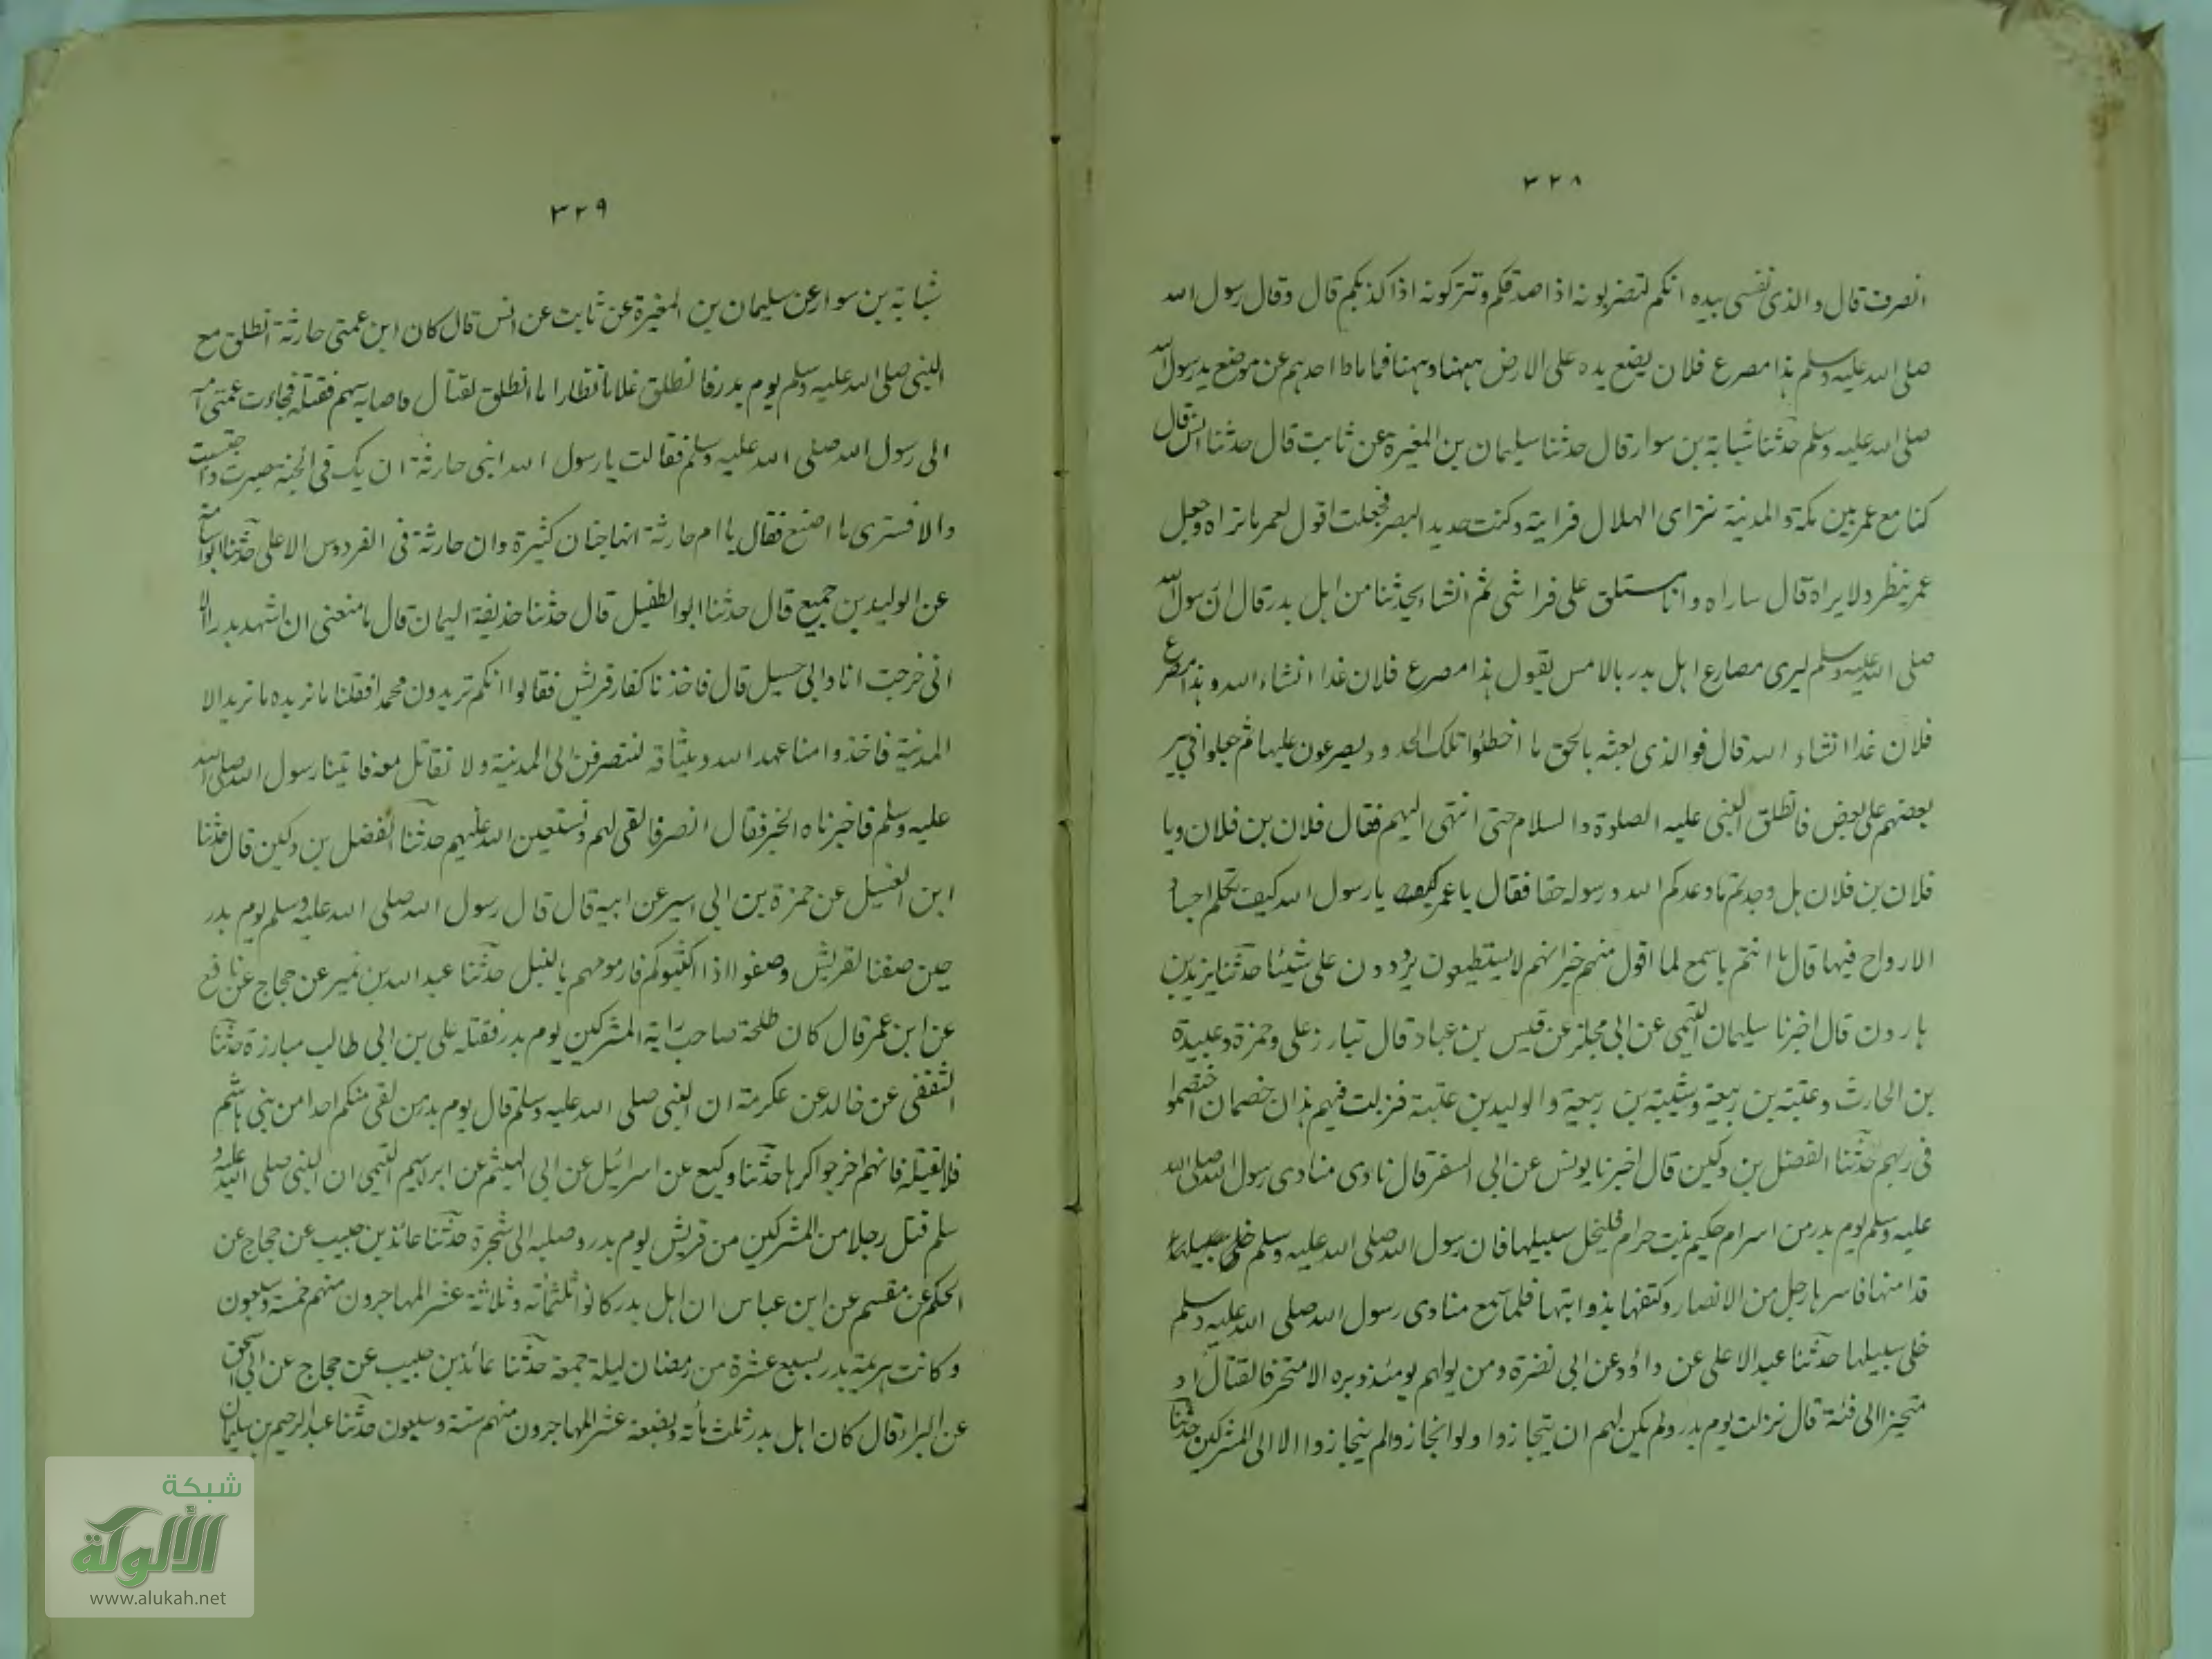 ٣٢٨
انصرف قال والذى نفسى بيده انكم لتضربونه اذا صدقكم وتتركونه اذا كذبكم قال وقال رسول الله
صلى الله عليه وسلم هذا مصرع فلان يضع يده على الارض ههنا وههنا فما ماط احدهم عن موضع يد رسول الله
صلى الله عليه وسلم حدثنا شبابة بن سوار قال حدثنا سليمان بن المغيرة عن ثابت قال حدثنا انس قال
كنا مع عمر بين مكة والمدينة نتراى الهلال فرايته وكنت حديد البصر فجعلت اقول لعمر ما تراه وجعل
عمر ينظر ولا يراه قال ساراه وانا مستلق على فراشى ثم انشاء يحدثنا من اهل بدر قال ان رسول الله
صلى الله عليه وسلم ليرى مصارع اهل بدر بالامس يقول هذا مصرع فلان غدا انشاء الله وهذا مصرع
فلان غدا انشاء الله قال فوالذى بعثه بالحق ما اخطئوا تلك الحدود يصرعون عليها ثم جعلوا فى بير
بعضهم على بعض فانطلق النبى عليه الصلوة والسلام حتى انتهى اليهم فقال فلان بن فلان ويا
فلان بن فلان هل وجدتم ما وعدكم الله ورسوله حقا فقال يا عمر يا رسول الله كيف تكلم اجسادا
الارواح فيها قال ما انتم باسمع لما اقول منهم غير انهم لا يستطيعون يردون على شيئا حدثنا يزيد بن
هارون قال اخبرنا سليمان التيمى عن ابى مجلز عن قيس بن عباد قال تبارز على وحمزة وعبيدة
بن الحارث وعتبة بن ربيعة وشيبة بن ربيعة والوليد بن عتبة فنزلت فيهم هذان خصمان اختصموا
فى ربهم حدثنا الفضل بن دكين قال اخبرنا يونس عن ابى السفر قال نادى منادى رسول الله صلى الله
عليه وسلم يوم بدر من اسر ام حكيم بنت حرام فليخل سبيلها فان رسول الله صلى الله عليه وسلم
قد امنها فاسرها رجل من الانصار وكتفها بذوابتها فلما سمع منادى رسول الله صلى الله عليه وسلم
خلى سبيلها حدثنا عبد الاعلى عن داؤد عن ابى نضرة ومن يولهم يومئذ دبره الا متحرفا لقتال او
متحيزا الى فئة قال نزلت يوم بدر ولم يكن لهم ان يتجازوا ولو انجازوا لم ينجازوا الا الى المشركين حدثنا
٣٢٩
شبابة بن سوار عن سليمان بن المغيرة عن ثابت عن انس قال كان ابن عمتى حارثة انطلق مع
النبى صلى الله عليه وسلم يوم بدر فانطلق غلاما نظارا ما انطلق لقتال فاصابه سهم فقتله فجاءت عمتى امه
الى رسول الله صلى الله عليه وسلم فقالت يا رسول الله ابنى حارثة ان يك فى الجنة صبرت واحتسبت
والا فسترى ما اصنع فقال يا ام حارثة انها جنان كثيرة وان حارثة فى الفردوس الاعلى حدثنا ابو اسامة
عن الوليد بن جميع قال حدثنا ابو الطفيل قال حدثنا حذيفة اليمان قال ما منعنى ان اشهد بدرا الا
انى خرجت انا وابى حسيل قال فاخذنا كفار قريش فقالوا انكم تريدون محمدا فقلنا ما نريده ما نريد الا
المدينة فاخذوا منا عهد الله وميثاقه لننصرفن الى المدينة ولا نقاتل معه فاتينا رسول الله صلى الله
عليه وسلم فاخبرناه الخبر فقال انصرفا نفى لهم ونستعين الله عليهم حدثنا الفضل بن دكين قال حدثنا
ابن الغسيل عن حمزة بن ابى اسير عن ابيه قال قال رسول الله صلى الله عليه وسلم يوم بدر
حين صفنا لقريش وصفوا اذا اكثبوكم فارموهم بالنبل حدثنا عبد الله بن نمير عن حجاج عن نافع
عن ابن عمر قال كان طلحة صاحب راية المشركين يوم بدر فقتله على بن ابى طالب مبارزة حدثنا
الثقفى عن خالد عن عكرمة ان النبى صلى الله عليه وسلم قال يوم بدر من لقى منكم احدا من بنى هاشم
فلا يقتله فانهم اخرجوا كرها حدثنا وكيع عن اسرائيل عن ابى الهيثم عن ابراهيم التيمى ان النبى صلى الله عليه و
سلم قتل رجلا من المشركين من قريش يوم بدر وصلبه الى شجرة حدثنا عائذ بن حبيب عن حجاج عن
الحكم عن مقسم عن ابن عباس ان اهل بدر كانوا ثلثمائة وثلاثة عشر المهاجرون منهم خمسة وسبعون
وكانت هزيمة بدر لسبع عشرة من رمضان ليلة جمعة حدثنا عائذ بن حبيب عن حجاج عن ابى اسحق
عن البراء قال كان اهل بدر ثلث مأته وبضعة عشر المهاجرون منهم ستة وسبعون حدثنا عبد الرحيم بن سليمان
شبكة
الألوكة
www.alukah.net